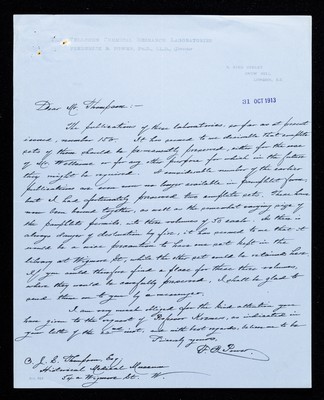 Wellcome Chemical Research Laboratories
Frederick B. Power Ph.D., LL.D., Director
6 King Street
Snow Hill
London. E.C
31 OCT 1913
Dear Mr. Thompson:—
The publications of these laboratories, so far as at present
issued, number 150. It has seemed to me desirable that complete
sets of them should be permanently preserved, either for the use
of Mr. Wellcome or for any other purpose for which in the future
they might be required. A considerable number of the earlier
publications are even now no longer available in pamphlet form,
but I had fortunately preserved two complete sets. These have
now been bound together, as well as the somewhat varying size of
the pamphlets permitted, into three volumes of 50 each. As there is
always danger of destruction by fire, it has seemed to me that it
would be a wise precaution to have one set kept in the
library at Wigmore St., while the other set could be retained here.
If you would therefore find a place for these three volumes,
where they would be carefully preserved, I shall be glad to
send them to you by a messenger.
I am very much obliged for the kind attention you
have given to the request of Professor Kremers, as indicated in
your letter of the 22nd inst., and with best regards, believe me to be
Sincerely yours,
F. B. Power.
C. J. S. Thompson, Esq.,
Historical Medical Museum
54a Wigmore St. W.